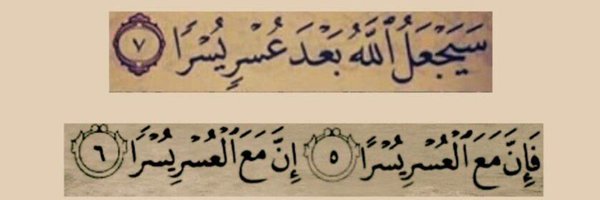 سَيَجْعَلُ ٱللَّهُ بَعْدَ عُسْرٍ يُسْرًا ٧
فَإِنَّ مَعَ ٱلْعُسْرِ يُسْرًا ٥ إِنَّ مَعَ ٱلْعُسْرِ يُسْرًا ٦